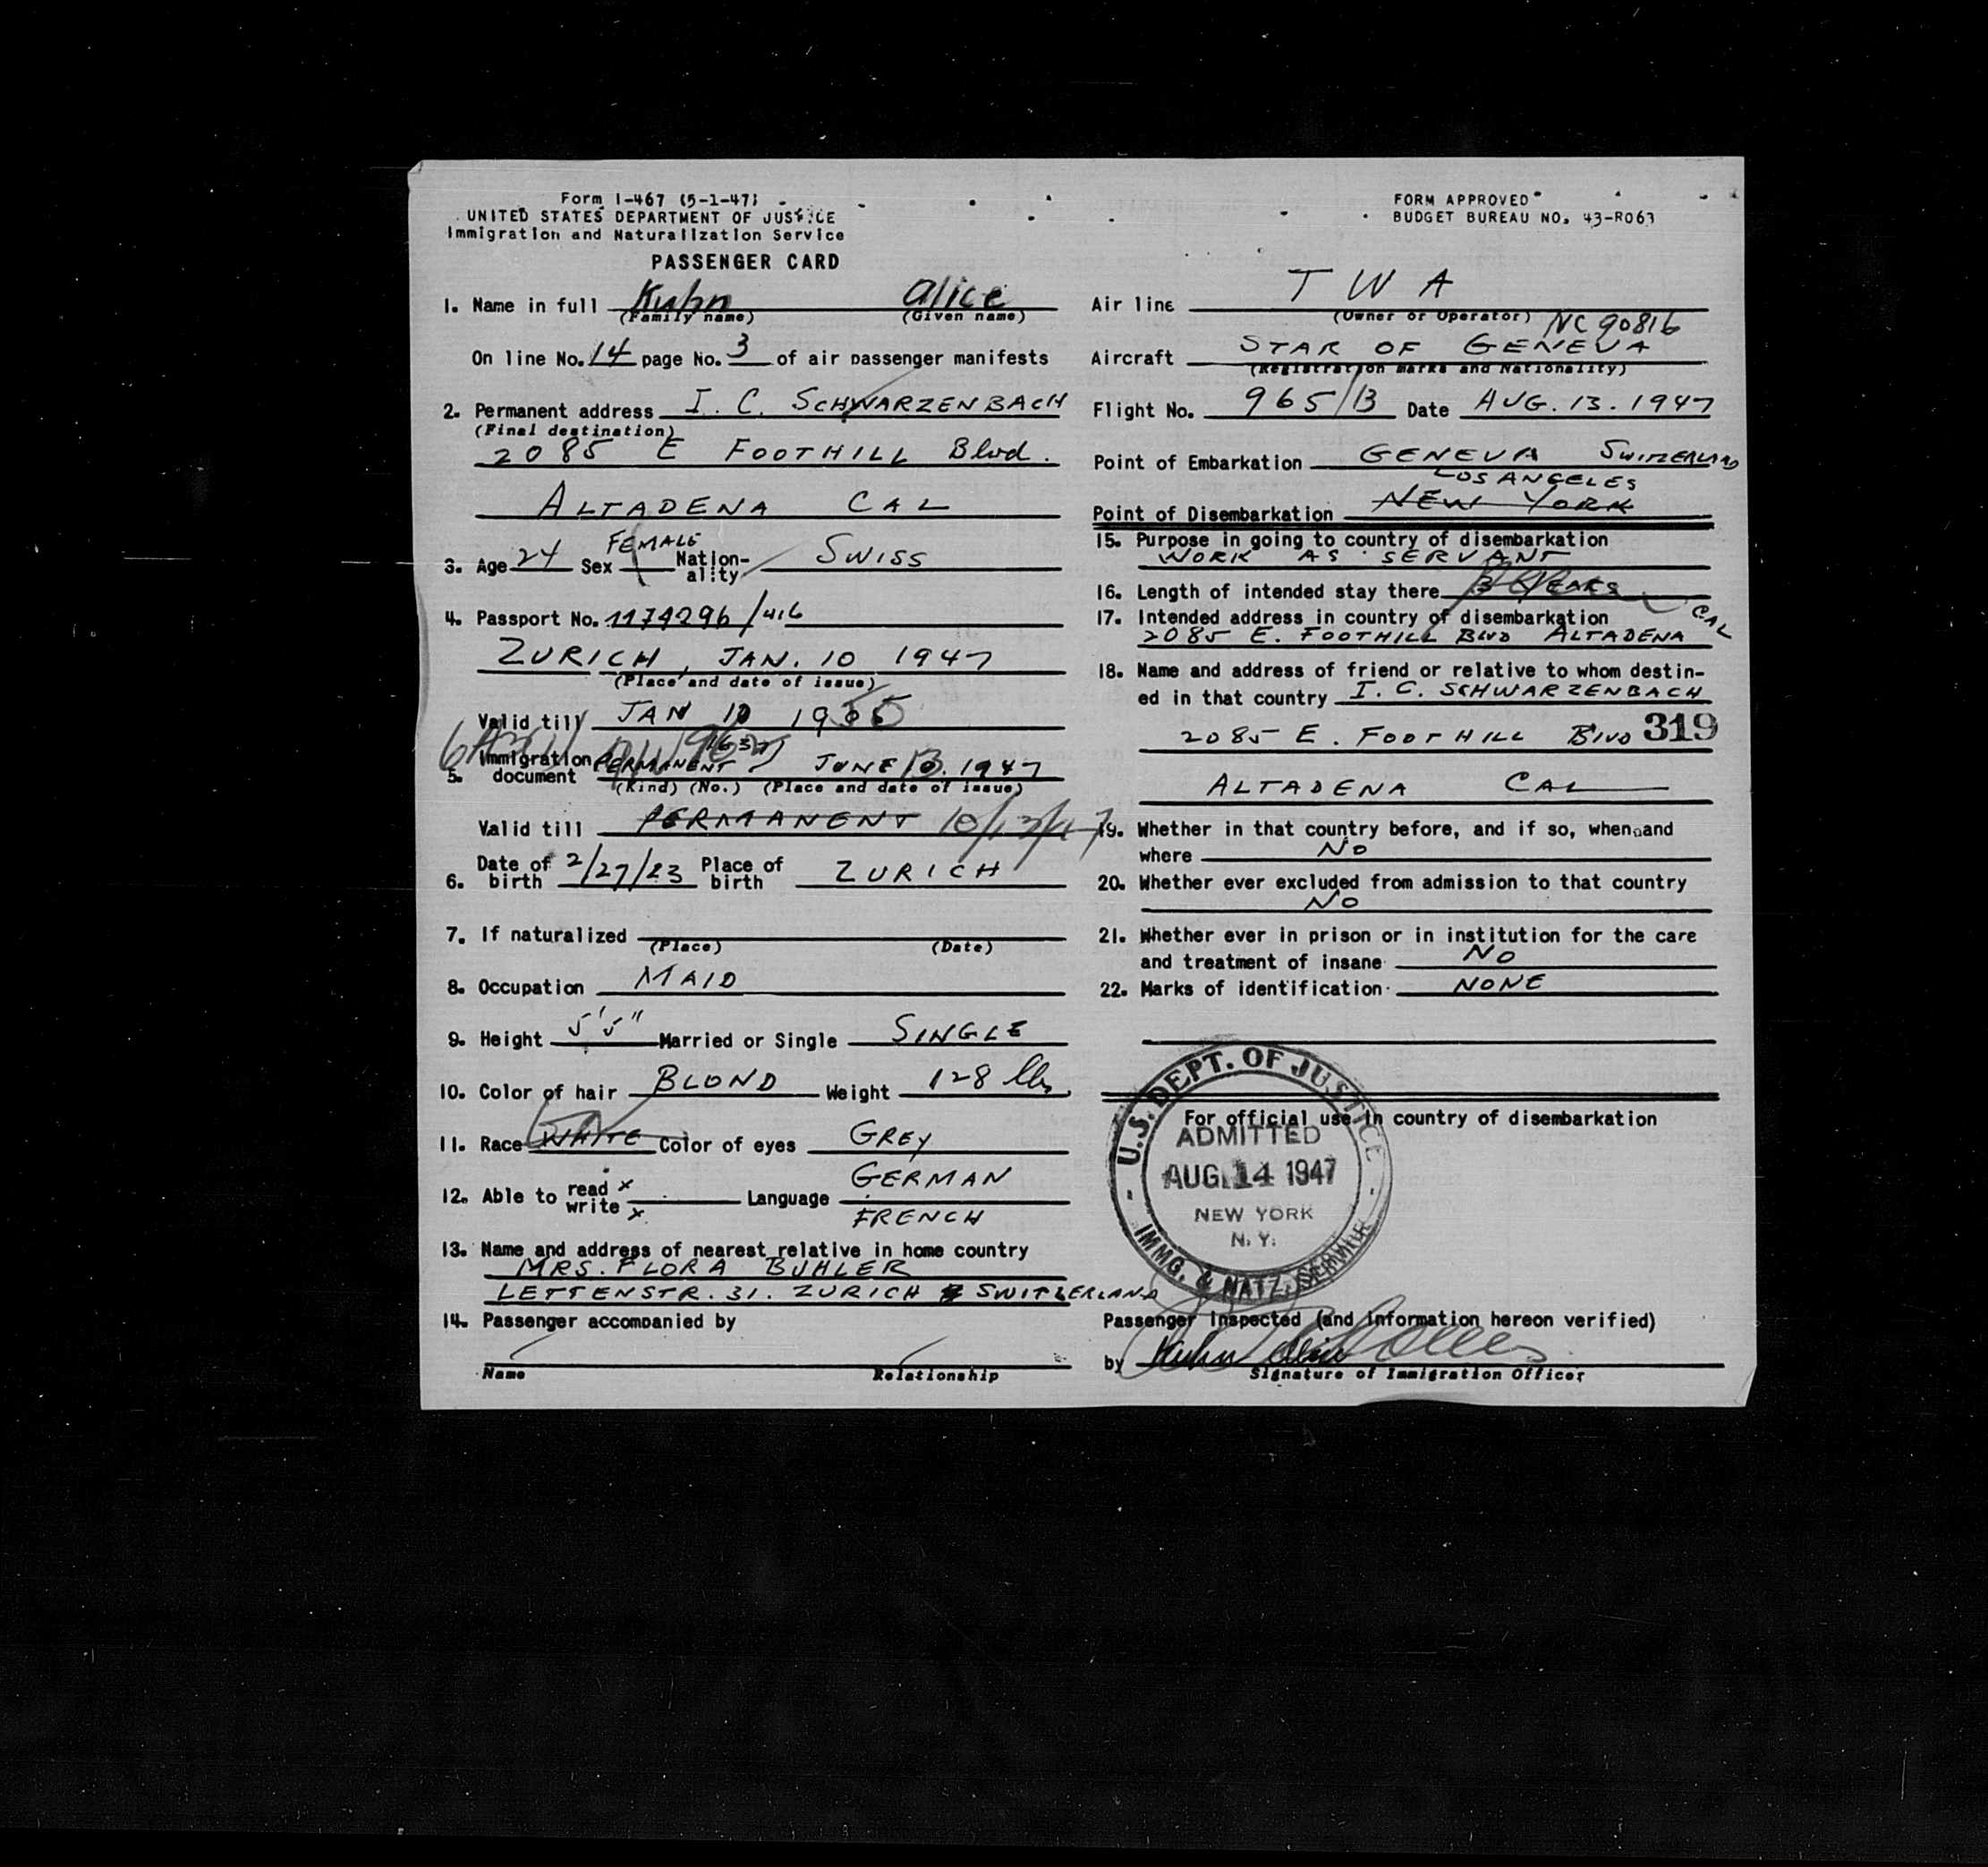 Form I-467 (5-1-47)
UNITED STATES DEPARTMENT OF JUSTICE
Immigration and Naturalization Service
PASSENGER CARD
1. Name in full Kuhn Alice
(Family name) (Given name)
On line No. 14 page No. 3 of air passenger manifests
2. Permanent address I. C. SCHWARZENBACH
(Final destination)
2085 E FOOTHILL Blvd.
ALTADENA CAL
3. Age 24 Sex FEMALE Nation-ality SWISS
4. Passport No. 1174296/416
ZURICH, JAN. 10 1947
(Place and date of issue)
Valid till JAN 10 1955
5. Immigration document PERMANENT JUNE 13. 1947
(Kind) (No.) (Place and date of issue)
Valid till PERMANENT 10/13/47
6. Date of birth 2/27/23 Place of birth ZURICH
7. If naturalized
(Place) (Date)
8. Occupation MAID
9. Height 5'5" Married or Single SINGLE
10. Color of hair BLOND Weight 128 lbs
11. Race WHITE Color of eyes GREY
12. Able to read x write x Language GERMAN
FRENCH
13. Name and address of nearest relative in home country
MRS. FLORA BUHLER
LETTENSTR. 31. ZURICH SWITZERLAND
14. Passenger accompanied by
Name Relationship
FORM APPROVED
BUDGET BUREAU NO. 43-R063
Air line TWA
(Owner or Operator) NC90816
Aircraft STAR OF GENEVA
(Registration marks and Nationality)
Flight No. 965/13 Date AUG. 13. 1947
Point of Embarkation GENEVA SWITZERLAND
LOS ANGELES
Point of Disembarkation NEW YORK
15. Purpose in going to country of disembarkation
WORK AS SERVANT
16. Length of intended stay there YEARS
17. Intended address in country of disembarkation
2085 E. FOOTHILL BLVD ALTADENA CAL
18. Name and address of friend or relative to whom destin-
ed in that country I. C. SCHWARZENBACH
2085 E. FOOTHILL Blvd 319
ALTADENA CAL
19. Whether in that country before, and if so, when and
where No
20. Whether ever excluded from admission to that country
No
21. Whether ever in prison or in institution for the care
and treatment of insane No
22. Marks of identification NONE
For official use in country of disembarkation
U.S. DEPT. OF JUSTICE
ADMITTED
AUG 14 1947
NEW YORK
N. Y.
IMMG. & NATZ. SERVICE
Passenger Inspected (and information hereon verified)
by Kuhn Alice
Signature of Immigration Officer